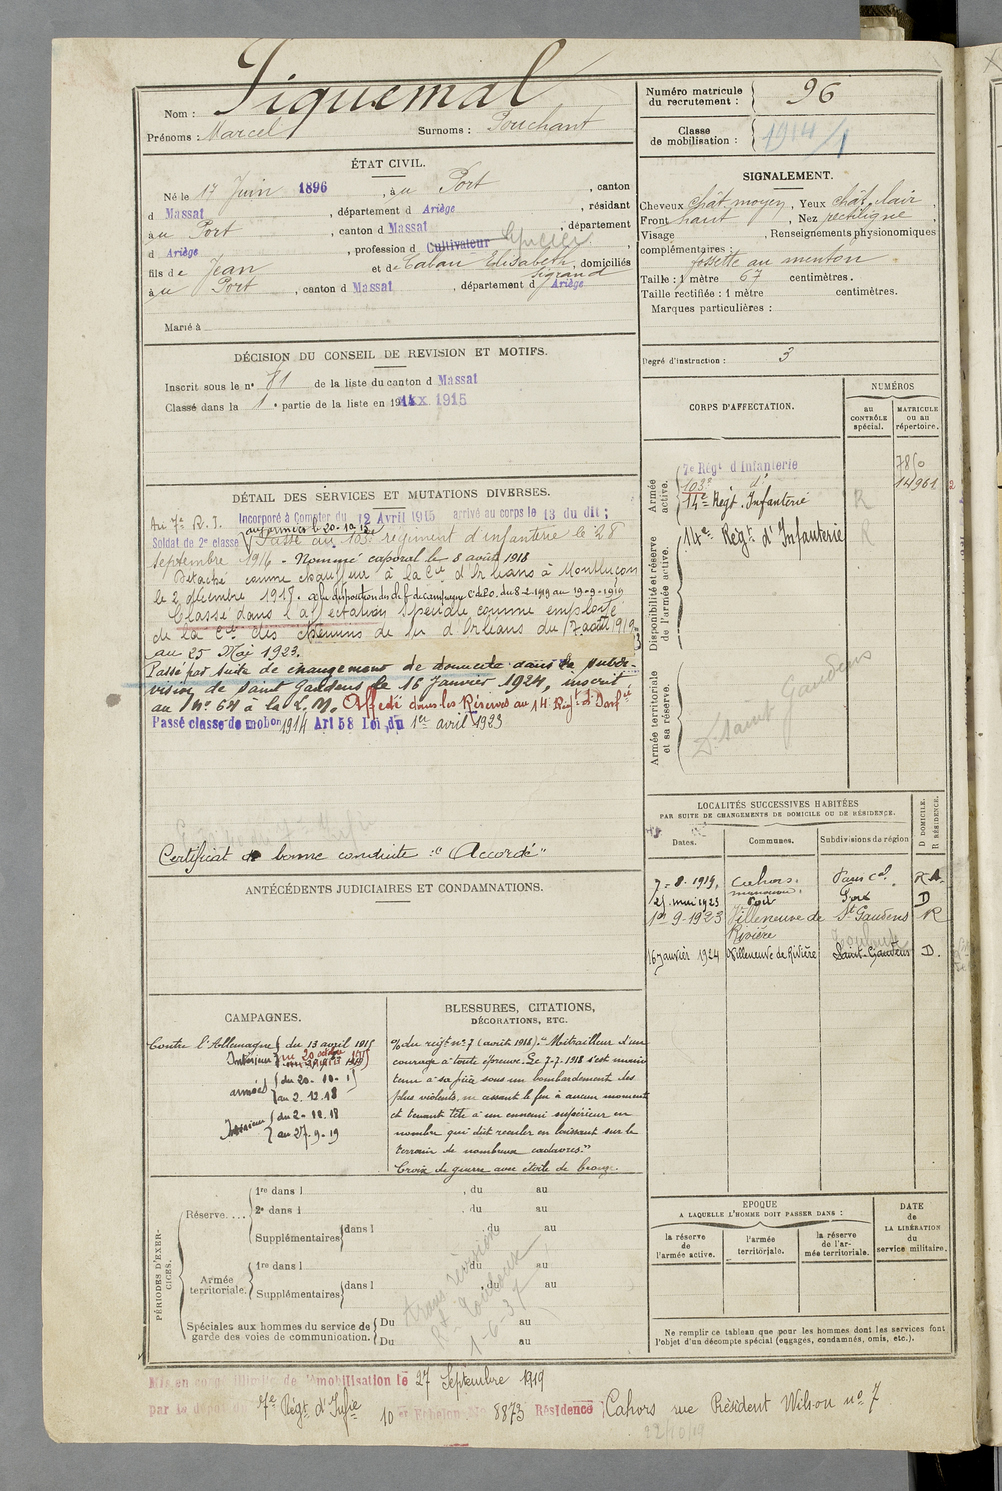 Nom : Piquemal
Prénoms : Marcel Surnoms : Pouchant
ÉTAT CIVIL.
Né le 17 Juin 1896, à u Port, canton
d Massat, département d Ariège, résidant
à u Port, canton d Massat, département
d Ariège, profession d Cultivateur Epicier,
fils de Jean et de Cabau Elisabeth, domiciliés
à u Port, canton d Massat, département d Ariège
Marié à
DÉCISION DU CONSEIL DE REVISION ET MOTIFS.
Inscrit sous le nº 81 de la liste du canton d Massat
Classé dans la 1e partie de la liste en 1915
DÉTAIL DES SERVICES ET MUTATIONS DIVERSES.
Au 7e R. I. Incorporé à Compter du 12 Avril 1915 arrivé au corps le 13 du dit ;
Soldat de 2e classe aux armées le 20-10-15
Passé au 103e régiment d'infanterie le 28
septembre 1916 - Nommé caporal le 8 août 1918
Détaché comme chauffeur à la Cie d'Orléans à Montluçon
le 2 décembre 1918. à la disposition du chf de Campagne C d 20. du 8-2-1919 au 19-9-1919
Classé dans l'affectation spéciale comme employé
de la Cie des chemins de fer d'Orléans du 17 août 1919
au 25 Mai 1923.
Passé par suite de changement de domicile dans la subdi-
vision de Saint Gaudens le 16 Janvier 1924, inscrit
au nº 64 à la L. M. Affecté dans les Réserves au 14e Régt d'Infie
Passé classe de mobon 1914 Art 58 Loi du 1er avril 1923
Certificat de bonne conduite : "Accordé"
ANTÉCÉDENTS JUDICIAIRES ET CONDAMNATIONS.
CAMPAGNES.
Contre l'Allemagne du 13 avril 1915
Intérieur au 20 octobre 1915
armées du 20-10-15
au 2.12.18
Intérieur du 2-12.18
au 27-9-19
BLESSURES, CITATIONS,
DÉCORATIONS, ETC.
% du régt nº 7 (août 1918). "Mitrailleur d'un
courage à toute épreuve. Le 7-7-1918 s'est main
tenu à sa pièce sous un bombardement des
plus violents, ne cessant le feu à aucun moment
et tenant tête à un ennemi supérieur en
nombre qui dût reculer en laissant sur le
terrain de nombreux cadavres."
Croix de guerre avec étoile de bronze.
PÉRIODES D'EXERCICES.
Réserve....
1re dans l , du au
2e dans l , du au
Supplémentaires dans l , du au
Armée territoriale.
1re dans l , du au
Supplémentaires dans l , du au
Spéciales aux hommes du service de garde des voies de communication.
Du au
Du au
trans révision
Rt Toulouse
1-6-37
Numéro matricule du recrutement : 96
Classe de mobilisation : 1914/1
SIGNALEMENT.
Cheveux chât moyen, Yeux chât. clair,
Front haut, Nez rectiligne,
Visage , Renseignements physionomiques
complémentaires :
fossette au menton
Taille : 1 mètre 67 centimètres.
Taille rectifiée : 1 mètre centimètres.
Marques particulières :
Degré d'instruction : 3
CORPS D'AFFECTATION.
NUMÉROS
au CONTRÔLE spécial.
MATRICULE ou au répertoire.
Armée active.
7e Régt d'Infanterie 7850
103e di 14961
14e Régt Infanterie R
Disponibilité et réserve de l'armée active.
14e Régt d'Infanterie R
Armée territoriale et sa réserve.
Dt Saint Gaudens
LOCALITÉS SUCCESSIVES HABITÉES
PAR SUITE DE CHANGEMENTS DE DOMICILE OU DE RÉSIDENCE.
Dates. Communes. Subdivisions de région D DOMICILE. R RÉSIDENCE.
7-8-1919, Cahors. Paris Cal. R
25 mai 1923 D
1er 9-1923 Villeneuve de Rivière St Gaudens R
16 janvier 1924 Villeneuve de Rivière Saint-Gaudens D.
EPOQUE
A LAQUELLE L'HOMME DOIT PASSER DANS :
la réserve de l'armée active.
l'armée territoriale.
la réserve de l'armée territoriale.
DATE de LA LIBÉRATION du service militaire.
Ne remplir ce tableau que pour les hommes dont les services font
l'objet d'un décompte spécial (engagés, condamnés, omis, etc.).
Mis en congé illimité de démobilisation le 27 Septembre 1919
par le dépôt du 7e Régt d'Infie 10 er Echelon No 8873 Résidence : Cahors rue Président Wilson nº 7
22/10/19